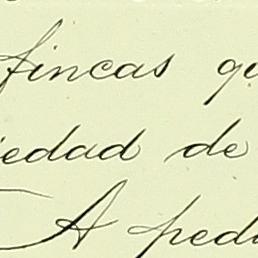 fincas qu
iedad de
A pedi